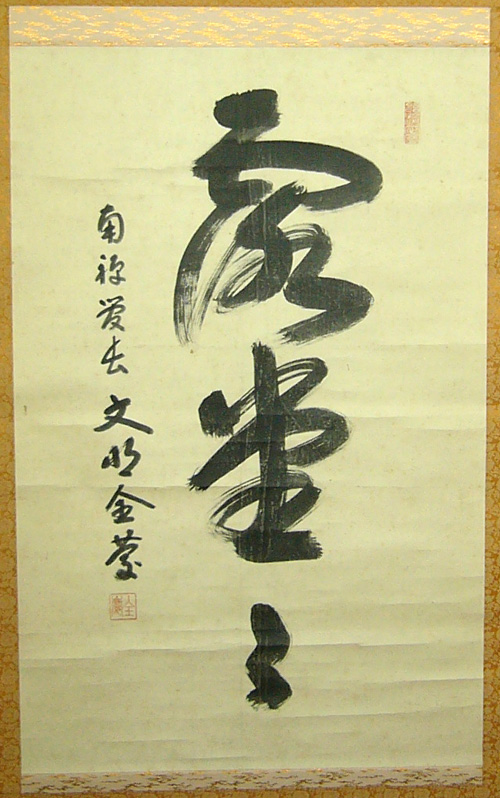 露堂々
南禅管長 文明全慶